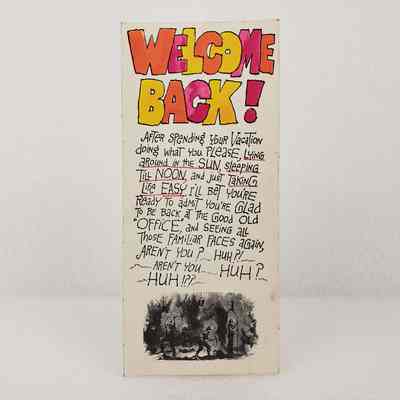 WELCOME
BACK!
AFTER SPENDING YOUR VACATION
doing what you PLEASE, LYING
around in the SUN, sleeping
Till NOON, and just TAKING
Life EASY, I'll BET you're
READY TO admit you're GLAD
TO BE BACK AT THE GOOD OLD
"OFFICE," and seeing all
THOSE FAMILIAR FACES again,
AREN'T YOU? HUH?!
AREN'T YOU HUH?
HUH!??